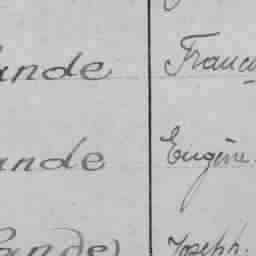 ande Franci
ande Eugène
ande Joseph.